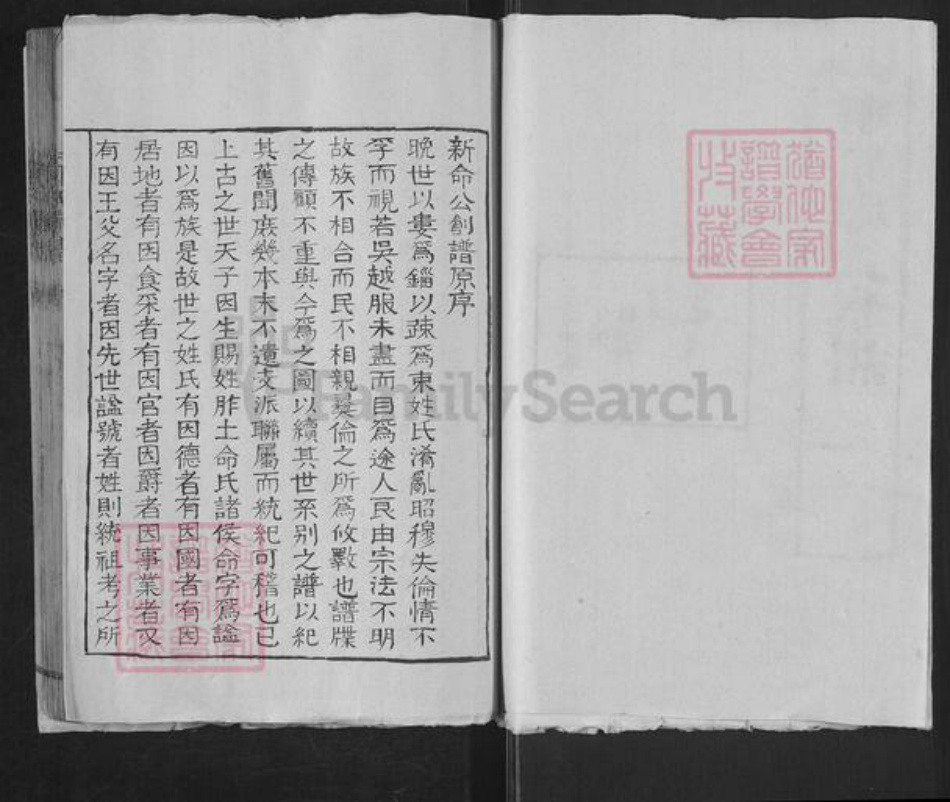 新命公創譜原序
晚世以婁爲鍿以疎爲束姓氏淆亂昭穆失倫情不
孚而視若吳越服未盡而目爲途人良由宗法不明
故族不相合而民不相親彛倫之所爲攸斁也譜牒
之傳顧不重與今爲之圖以續其世系别之譜以紀
其舊聞庶幾本末不遺支派聯屬而統紀可稽也已
上古之世天子因生賜姓胙土命氏諸侯命字爲謚
因以爲族是故世之姓氏有因德者有因國者有因
居地者有因食采者有因官者因爵者因事業者又
有因王父名字者因先世謚號者姓則統祖考之所
猶他家
譜學會
收藏
FamilySearch